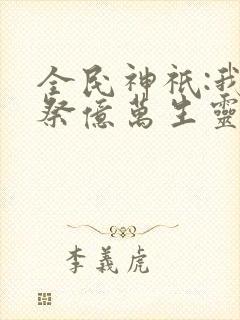 全民神祇:我
祭億萬生靈
李義虎